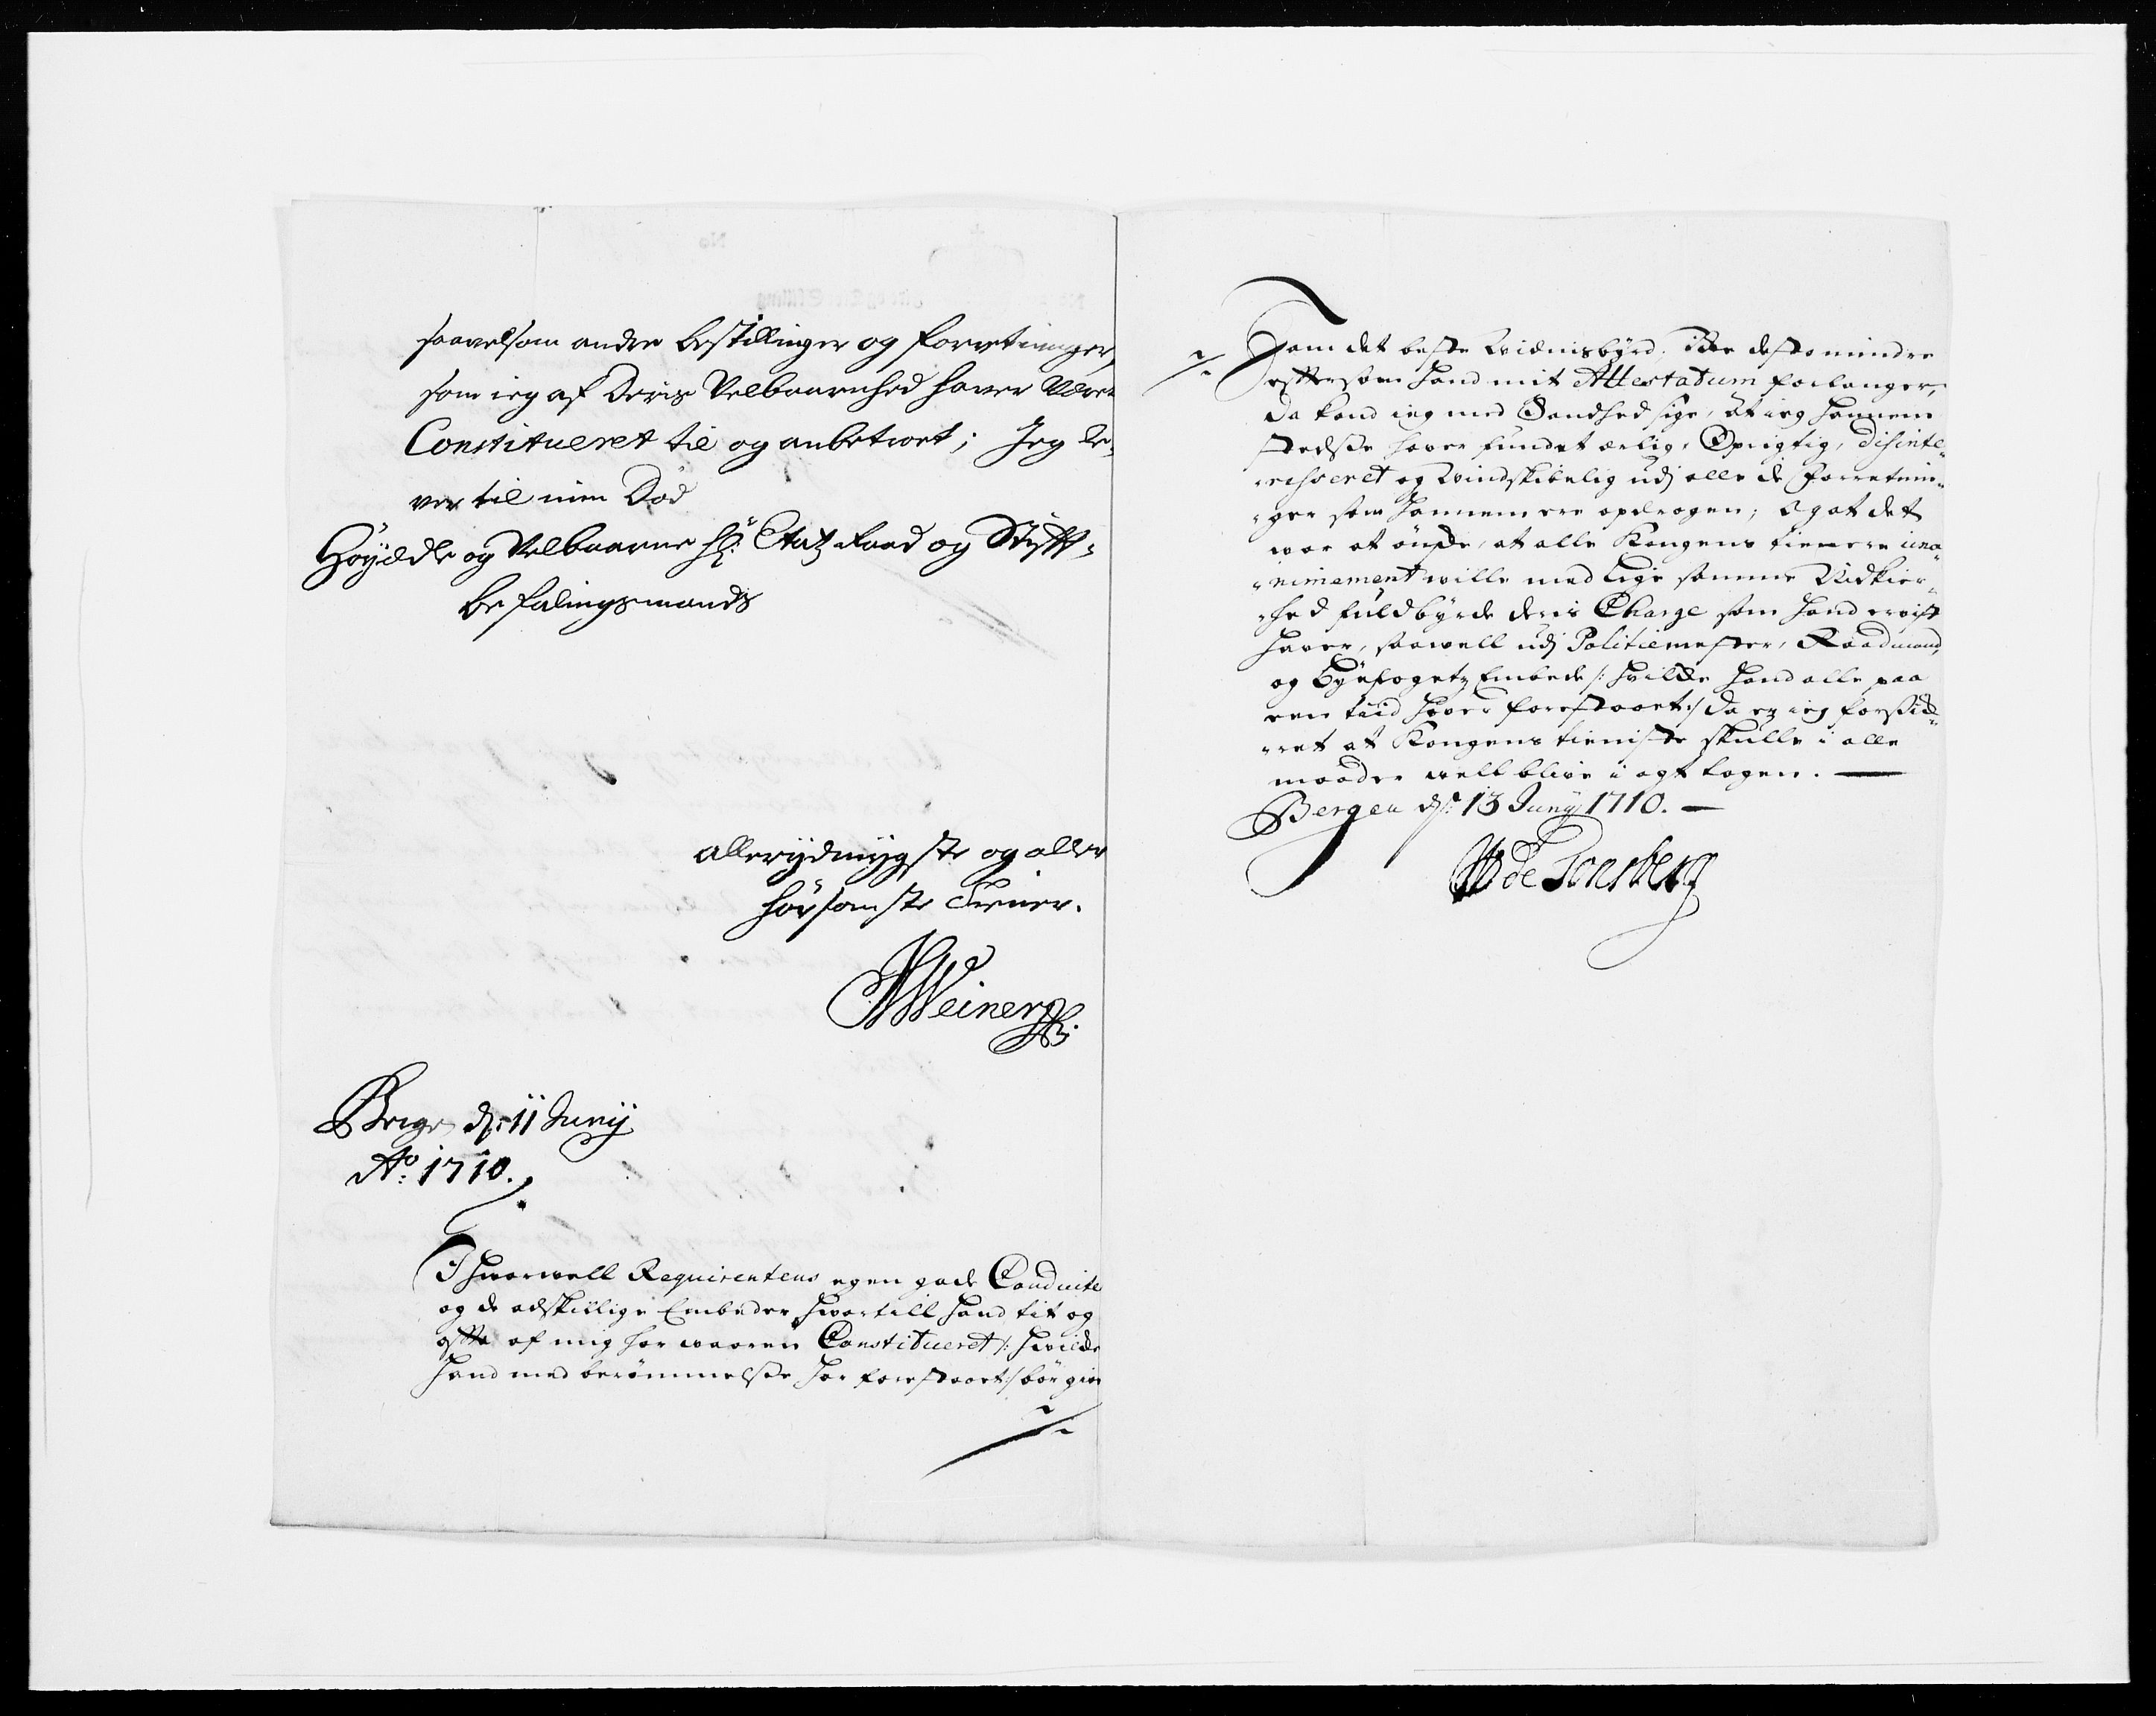 saavelsom andre bestillinger og forretninger,
som ieg af Deris Velbaarenhed haver været
Constitueret til og anbetroet; Jeg le-
ver til min Död
Höyædle og Velbaarne Hr: Etatz Raad og Stifft-
befalingsmands
allerydmygste og aller
hörsomste Tiener.
Weiner
Bergen d: 11 Junij
Ao: 1710.
I hvorwell Reqvirentens egen gode Conduite
og de adskillige Embeder, hvortill hand tit og
offte af mig har waaren Constitueret /: hvilcke
hand med berömmelse har forestaaet :/ bör give
ham det beste Widnisbyrd, icke desto mindre
efftersom hand mit Attestatum forlanger,
da kand ieg med Sandhed sige, at ieg hannem
stedse haver fundet ærlig, Oprigtig, disinte-
resseret og windskibelig udj alle de forretnin-
ger som hannem ere opdragen; og at det
war at önske, at alle Kongens tienere una-
nimement wille med lige samme Nidkier-
hed fuldbyrde deris Charge som hand erviist
haver, saawell udj Politiemester, Raadmand,
og Byefogetz Embede /: hvilcke hand alle paa
een tiid haver forestaaet :/ da er ieg forsick-
ret at Kongens tieniste skulle i alle
maader well blive i agt tagen. —
Bergen d: 13 Junij 1710. —
W de Tonsberg